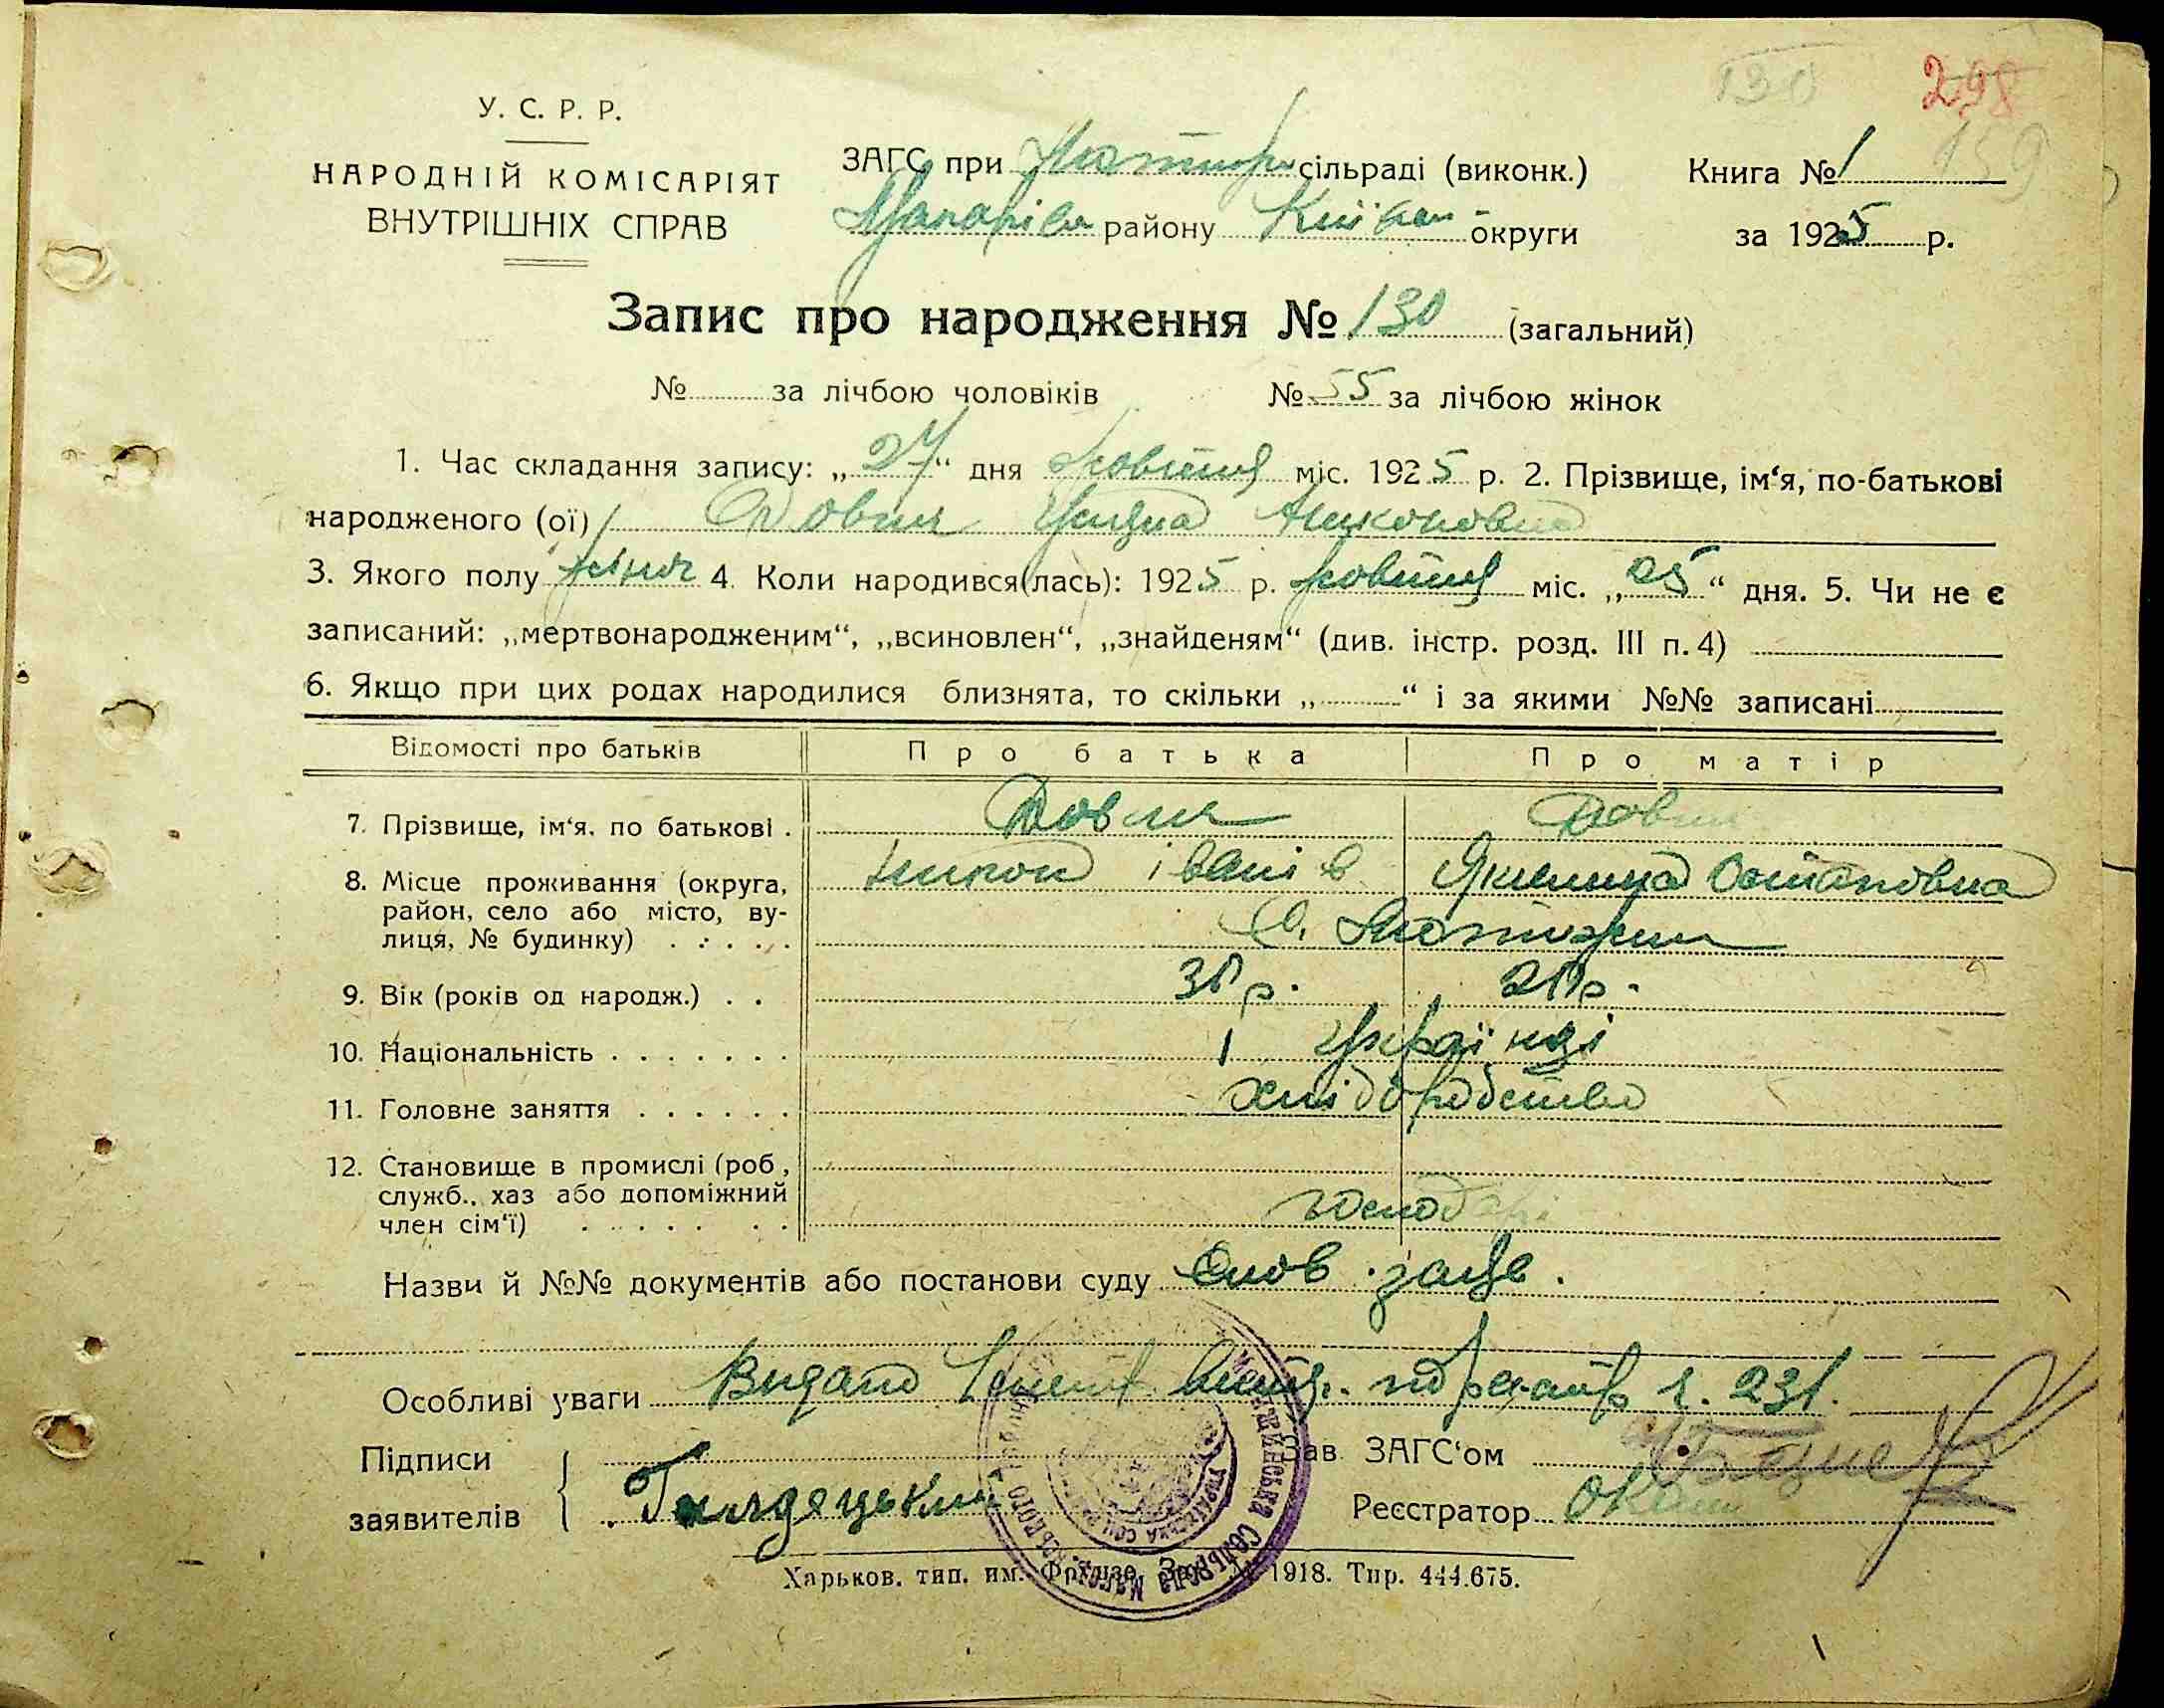 130 298
159
У. С. Р. Р.
НАРОДНІЙ КОМІСАРІЯТ
ВНУТРІШНІХ СПРАВ
ЗАГС при Мотижи сільраді (виконк.)
Макарів району Київ округи
Книга № 1
за 1925 р.
Запис про народження № 130 (загальний)
№ за лічбою чоловіків № 55 за лічбою жінок
1. Час складання запису: „27“ дня жовтня міс. 1925 р. 2. Прізвище, ім‘я, по-батькові
народженого (ої) Довгия Никоновна
3. Якого полу жіноч 4. Коли народився(лась): 1925 р. жовтня міс. „25“ дня. 5. Чи не є
записаний: „мертвонародженим“, „всиновлен“, „знайденям“ (див. інстр. розд. III п. 4)
6. Якщо при цих родах народилися близнята, то скільки „ “ і за якими №№ записані
Відомості про батьків Про батька Про матір
7. Прізвище, ім‘я. по батькові .
8. Місце проживання (округа, Никон Іванів Якилина Остаповна
район, село або місто, ву-
лиця, № будинку) . . . . . С. Мотижин
9. Вік (років од народж.) . . р. р.
10. Національність . . . . . . . Українці
11. Головне заняття . . . . . . хліборобство
12. Становище в промислі (роб,
служб., хаз або допоміжний
член сім‘ї) . . . . . . . господарі
Назви й №№ документів або постанови суду Слов. заяв.
Особливі уваги Видано витяг. по реєстр ч. 231.
Підписи
заявителів
Зав. ЗАГС‘ом
Реєстратор
Харьков. тип. им. Фрунзе. Зак. № 1918. Тир. 444.675.